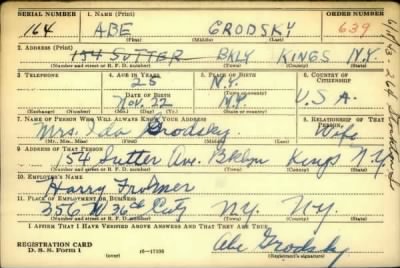 SERIAL NUMBER 1. NAME (Print) ORDER NUMBER
164 ABE GRODSKY 639
(First) (Middle) (Last)
2. ADDRESS (Print)
154 SUTTER BKLY KINGS N.Y.
(Number and street or R. F. D. number) (Town) (County) (State)
3. TELEPHONE 4. AGE IN YEARS 5. PLACE OF BIRTH 6. COUNTRY OF CITIZENSHIP
25 N.Y.
DATE OF BIRTH
Nov. 22 N.Y. U.S.A.
(Exchange) (Number) (Mo.) (Day) (Yr.) (Town or county) (State or country)
7. NAME OF PERSON WHO WILL ALWAYS KNOW YOUR ADDRESS 8. RELATIONSHIP OF THAT PERSON
Mrs. Ida Grodsky Wife
(Mr., Mrs., Miss) (First) (Middle) (Last)
9. ADDRESS OF THAT PERSON
154 Sutter Ave. Bklyn Kings N.Y.
(Number and street or R. F. D. number) (Town) (County) (State)
10. EMPLOYER'S NAME
Harry Frommer
11. PLACE OF EMPLOYMENT OR BUSINESS
356 W 36th City N.Y. N.Y.
(Number and street or R. F. D. number) (Town) (County) (State)
I AFFIRM THAT I HAVE VERIFIED ABOVE ANSWERS AND THAT THEY ARE TRUE.
REGISTRATION CARD
D. S. S. Form 1 (over) 16—17105 Abe Grodsky
(Registrant's signature)